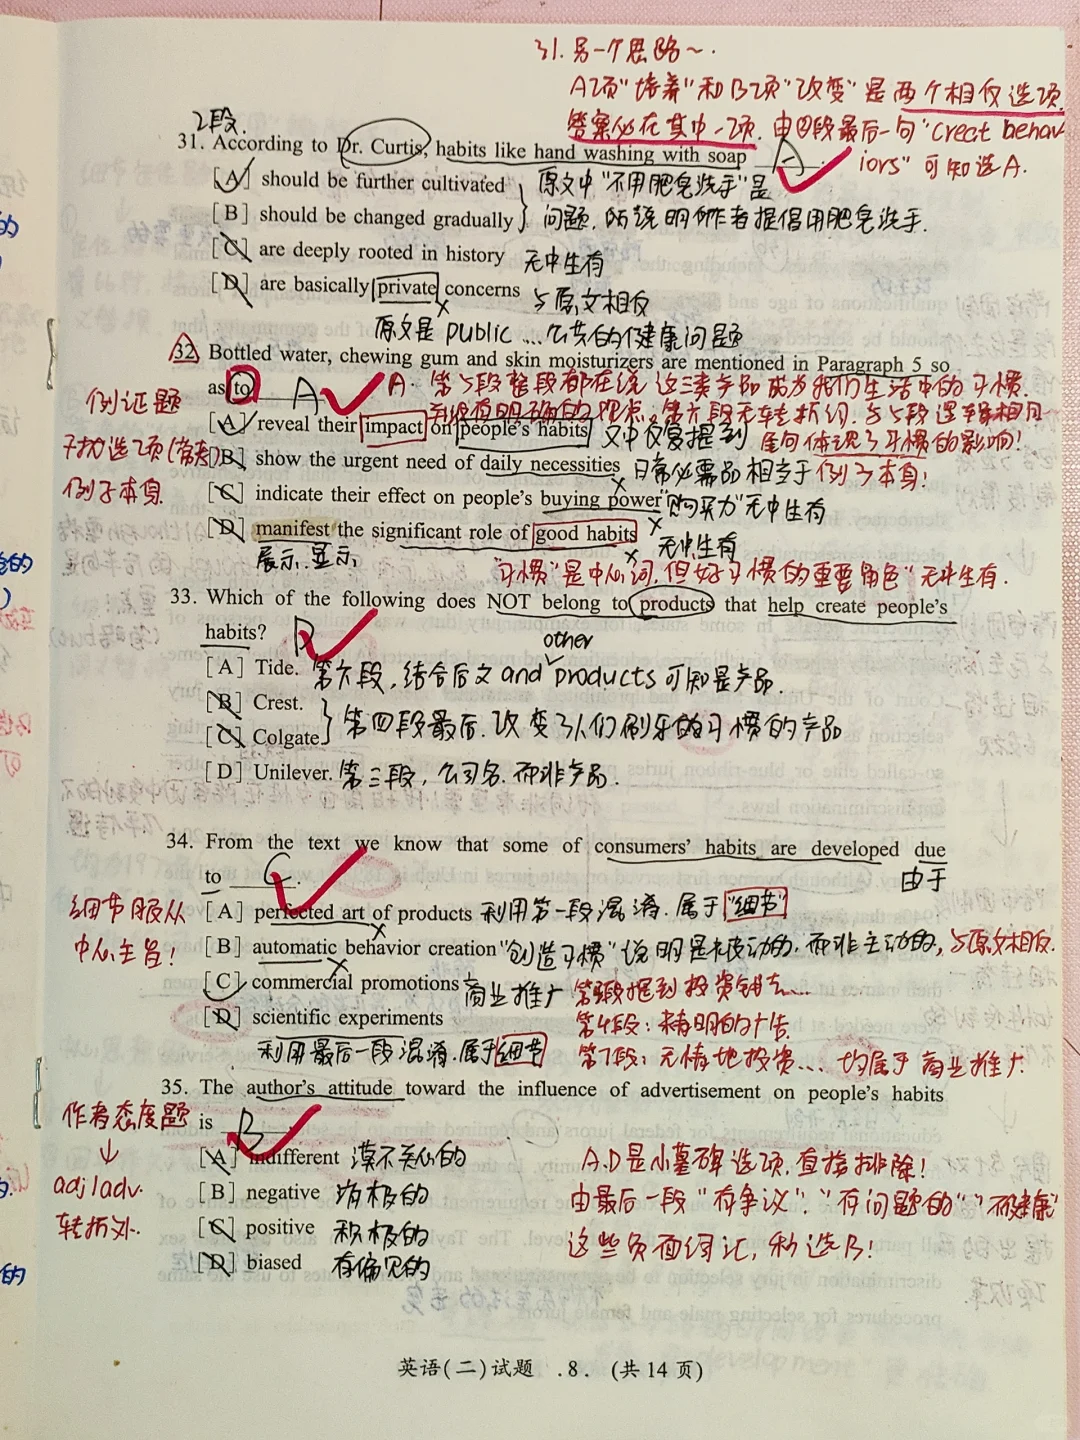 31.另一个思路~.
A项"培养"和B项"改变"是两个相反选项.
答案必在其中一项.由④段最后一句"creat behav
iors"可知选A.
2段.
31. According to Dr. Curtis, habits like hand washing with soap A
[A] should be further cultivated
[B] should be changed gradually
原文中"不用肥皂洗手"是
问题,所以说明作者提倡用肥皂洗手.
[C] are deeply rooted in history 无中生有
[D] are basically private concerns 与原文相反
原文是 public ... 公共的健康问题
32. Bottled water, chewing gum and skin moisturizers are mentioned in Paragraph 5 so
as to A
A. 第5段整段都在说 这三类产品成为我们生活中的习惯.
例证题
[A] reveal their impact on people's habits 文中反复提到
干扰选项(常考)
[B] show the urgent need of daily necessities 日常必需品相当于例子本身!
例子本身
[C] indicate their effect on people's buying power "购买力"无中生有
[D] manifest the significant role of good habits 无中生有
展示.显示
"习惯"是中心词,但"好习惯的重要角色"无中生有.
33. Which of the following does NOT belong to products that help create people's
habits? D
other
[A] Tide. 第六段,结合后文 and products 可知是产品.
[B] Crest.
[C] Colgate.
第四段最后.改变了人们刷牙的习惯的产品
[D] Unilever. 第三段,公司名.而非产品.
34. From the text we know that some of consumers' habits are developed due
to C
由于
细节服从
中心主旨!
[A] perfected art of products 利用第一段混淆.属于"细节"
[B] automatic behavior creation "创造习惯"说明是被动的.而非主动的,与原文相反.
[C] commercial promotions 商业推广
[D] scientific experiments
第4段:精明的广告
利用最后一段混淆.属于细节
第7段:无情地投资... 均属于商业推广
35. The author's attitude toward the influence of advertisement on people's habits
is B
作者态度题
↓
adj/adv.
转折处.
[A] indifferent 漠不关心的
[B] negative 消极的
[C] positive 积极的
[D] biased 有偏见的
A.D是小墓碑选项,直接排除!
由最后一段"有争议"、"有问题的""不健康"
这些负面词汇,秒选B!
英语(二)试题 .8. (共14页)